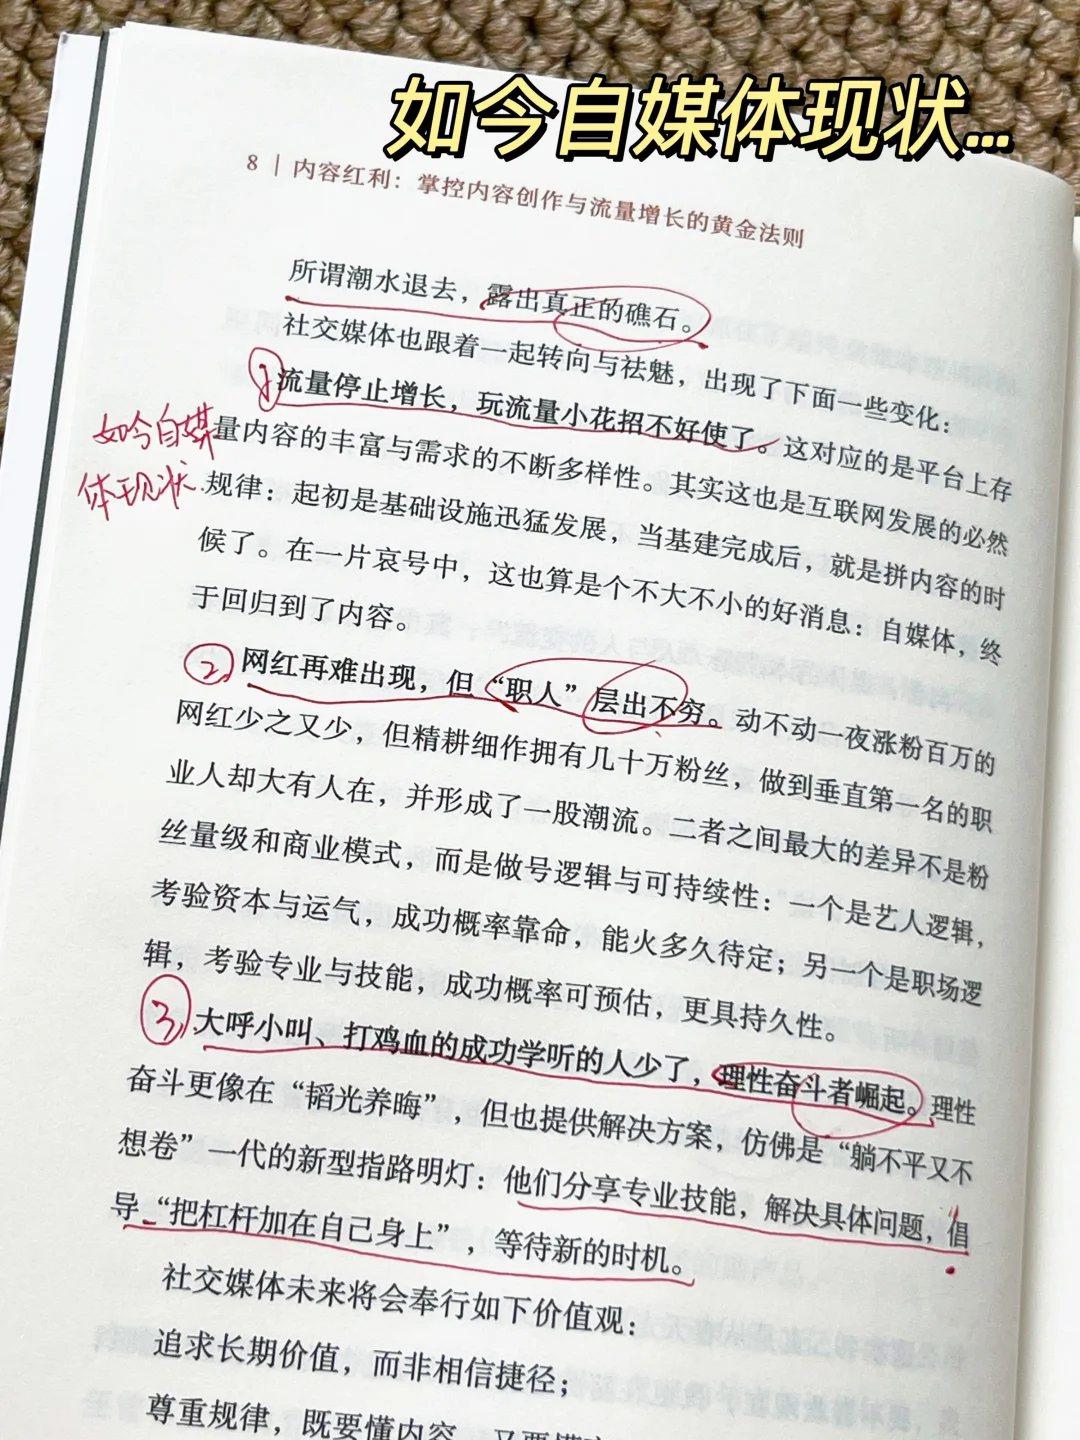 如今自媒体现状...
8 | 内容红利：掌控内容创作与流量增长的黄金法则
所谓潮水退去，露出真正的礁石。
社交媒体也跟着一起转向与祛魅，出现了下面一些变化：
1 流量停止增长，玩流量小花招不好使了。这对应的是平台上存
如今自媒
量内容的丰富与需求的不断多样性。其实这也是互联网发展的必然
体现状
规律：起初是基础设施迅猛发展，当基建完成后，就是拼内容的时
候了。在一片哀号中，这也算是个不大不小的好消息：自媒体，终
于回归到了内容。
2 网红再难出现，但“职人”层出不穷。动不动一夜涨粉百万的
网红少之又少，但精耕细作拥有几十万粉丝，做到垂直第一名的职
业人却大有人在，并形成了一股潮流。二者之间最大的差异不是粉
丝量级和商业模式，而是做号逻辑与可持续性：一个是艺人逻辑，
考验资本与运气，成功概率靠命，能火多久待定；另一个是职场逻
辑，考验专业与技能，成功概率可预估，更具持久性。
3 大呼小叫、打鸡血的成功学听的人少了，理性奋斗者崛起。理性
奋斗更像在“韬光养晦”，但也提供解决方案，仿佛是“躺不平又不
想卷”一代的新型指路明灯：他们分享专业技能，解决具体问题，倡
导“把杠杆加在自己身上”，等待新的时机。
社交媒体未来将会奉行如下价值观：
追求长期价值，而非相信捷径；
尊重规律，既要懂内容，又要懂